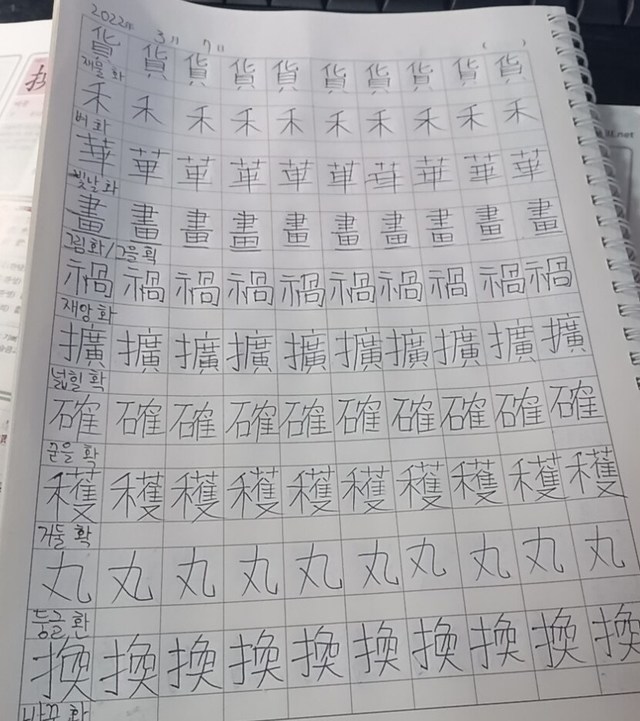 2022年 3月 7日 ( )
貨 貨 貨 貨 貨 貨 貨 貨 貨 貨
재물 화
禾 禾 禾 禾 禾 禾 禾 禾 禾 禾
벼 화
華 華 華 華 華 華 華 華 華 華
빛날 화
畵 畵 畵 畵 畵 畵 畵 畵 畵 畵
그림 화/그을 획
禍 禍 禍 禍 禍 禍 禍 禍 禍 禍
재앙 화
擴 擴 擴 擴 擴 擴 擴 擴 擴 擴
넓힐 확
確 確 確 確 確 確 確 確 確 確
굳을 확
穫 穫 穫 穫 穫 穫 穫 穫 穫 穫
거둘 확
丸 丸 丸 丸 丸 丸 丸 丸 丸 丸
둥글 환
換 換 換 換 換 換 換 換 換 換
.net